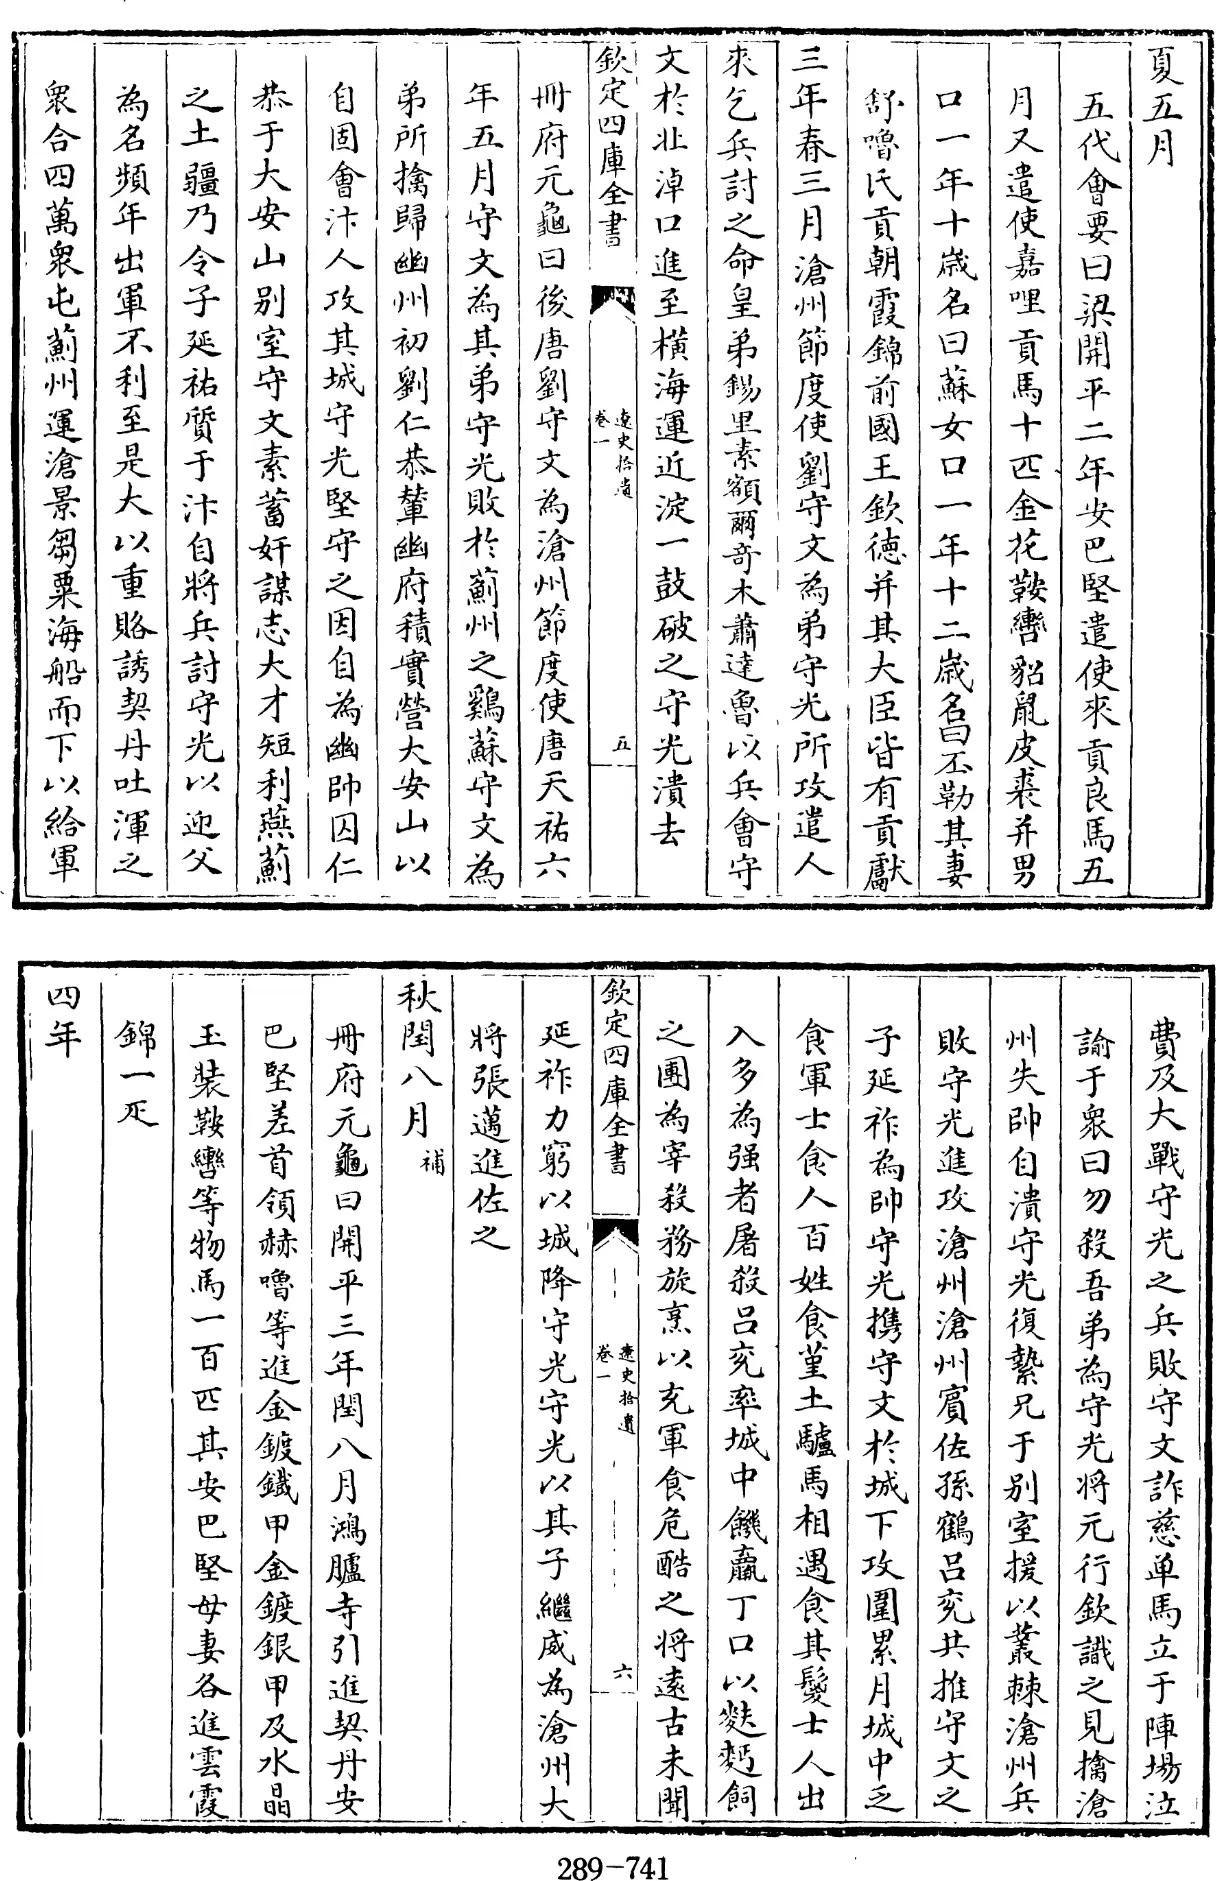 夏五月
五代會要曰梁開平二年安巴堅遣使來貢良馬五
月又遣使嘉哩貢馬十匹金花鞍轡貂鼠皮裘并男
口一年十歲名曰蘇女口一年十二歲名曰丕勒其妻
舒嚕氏貢朝霞錦前國王欽德并其大臣皆有貢獻
三年春三月滄州節度使劉守文為弟守光所攻遣人
來乞兵討之命皇弟錫里素額爾奇木蕭達魯以兵會守
文於北淖口進至橫海運近淀一鼓破之守光潰去
欽定四庫全書
遼史拾遺
卷一
五
冊府元龜曰後唐劉守文為滄州節度使唐天祐六
年五月守文為其弟守光敗於薊州之鷄蘇守文為
弟所擒歸幽州初劉仁恭輦幽府積實營大安山以
自固會汴人攻其城守光堅守之因自為幽帥囚仁
恭于大安山别室守文素蓄奸謀志大才短利燕薊
之土疆乃令子延祐質于汴自將兵討守光以迎父
為名頻年出軍不利至是大以重賂誘契丹吐渾之
衆合四萬衆屯薊州運滄景芻粟海船而下以給軍
費及大戰守光之兵敗守文詐慈单馬立于陣場泣
諭于衆曰勿殺吾弟為守光將元行欽識之見擒滄
州失帥自潰守光復縶兄于别室援以叢棘滄州兵
敗守光進攻滄州滄州賓佐孫鶴呂兖共推守文之
子延祚為帥守光攜守文於城下攻圍累月城中乏
食軍士食人百姓食堇土驢馬相遇食其鬉士人出
入多為强者屠殺呂兖率城中饑羸丁口以麩麪飼
之團為宰殺務旋烹以充軍食危酷之將遠古未聞
欽定四庫全書
遼史拾遺
卷一
六
延祚力窮以城降守光守光以其子繼威為滄州大
將張邁進佐之
秋閏八月補
冊府元龜曰開平三年閏八月鴻臚寺引進契丹安
巴堅差首領赫嚕等進金鍍鐵甲金鍍銀甲及水晶
玉裝鞍轡等物馬一百匹其安巴堅母妻各進雲霞
錦一疋
四年
289-741